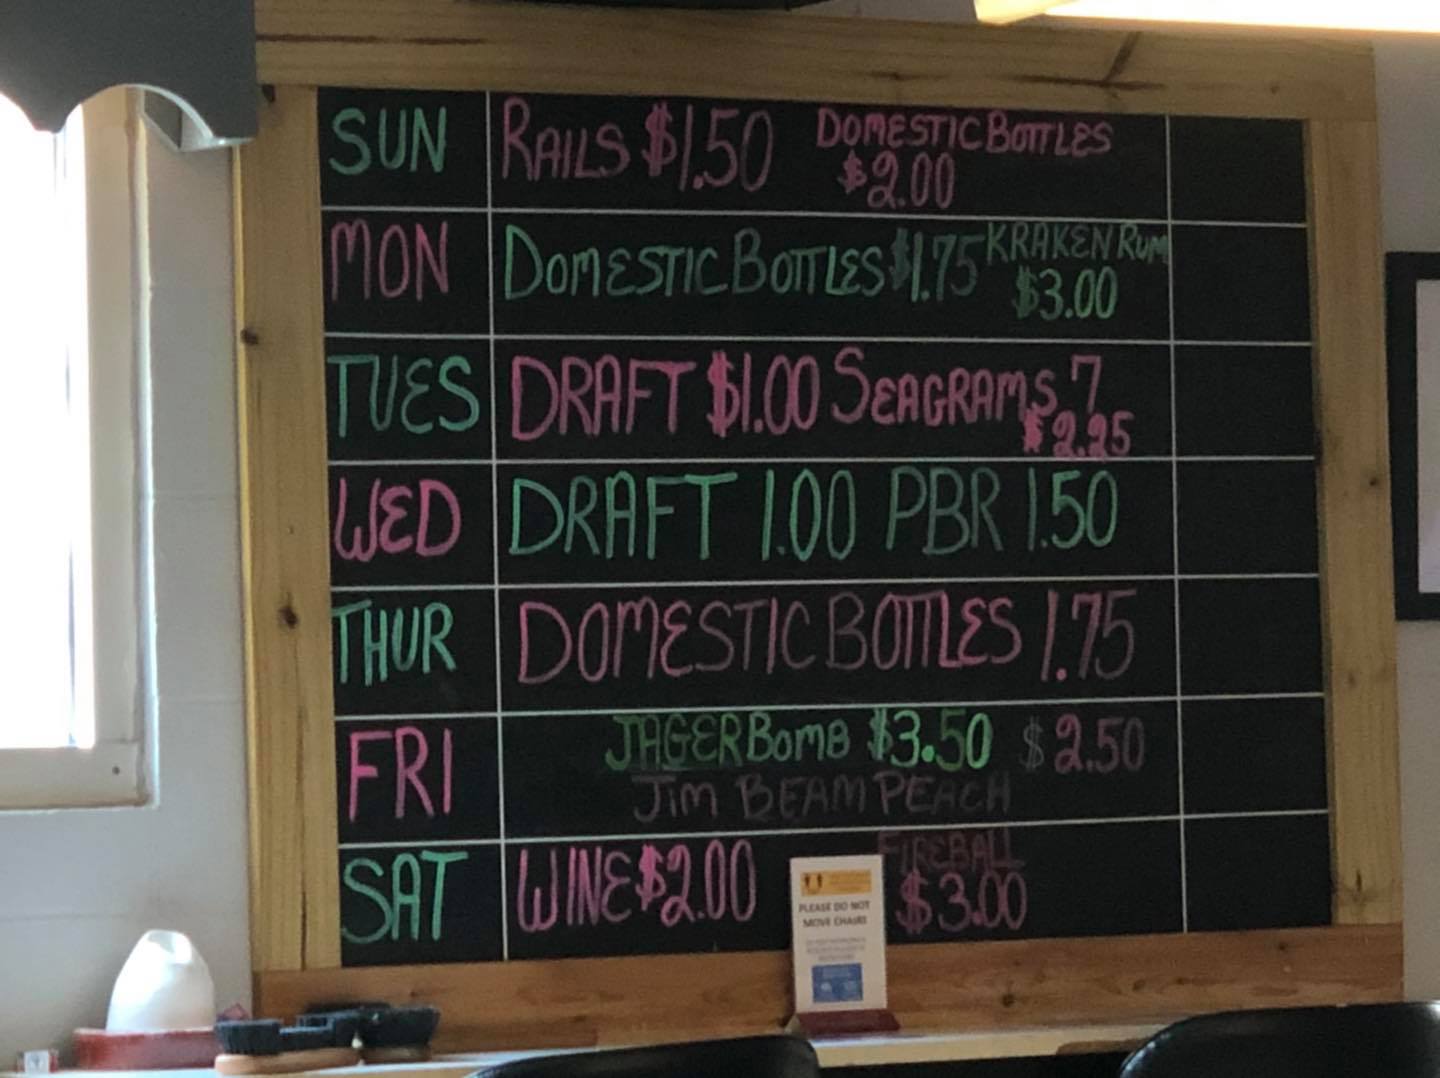 SUN RAILS $1.50 DOMESTIC BOTTLES
$2.00
MON DOMESTIC BOTTLES $1.75 KRAKEN RUM
$3.00
TUES DRAFT $1.00 SEAGRAMS 7
$2.25
WED DRAFT 1.00 PBR 1.50
THUR DOMESTIC BOTTLES 1.75
FRI JAGER BOMB $3.50 $2.50
JIM BEAM PEACH
SAT WINE $2.00 FIREBALL
$3.00
PLEASE DO NOT
MOVE CHAIRS